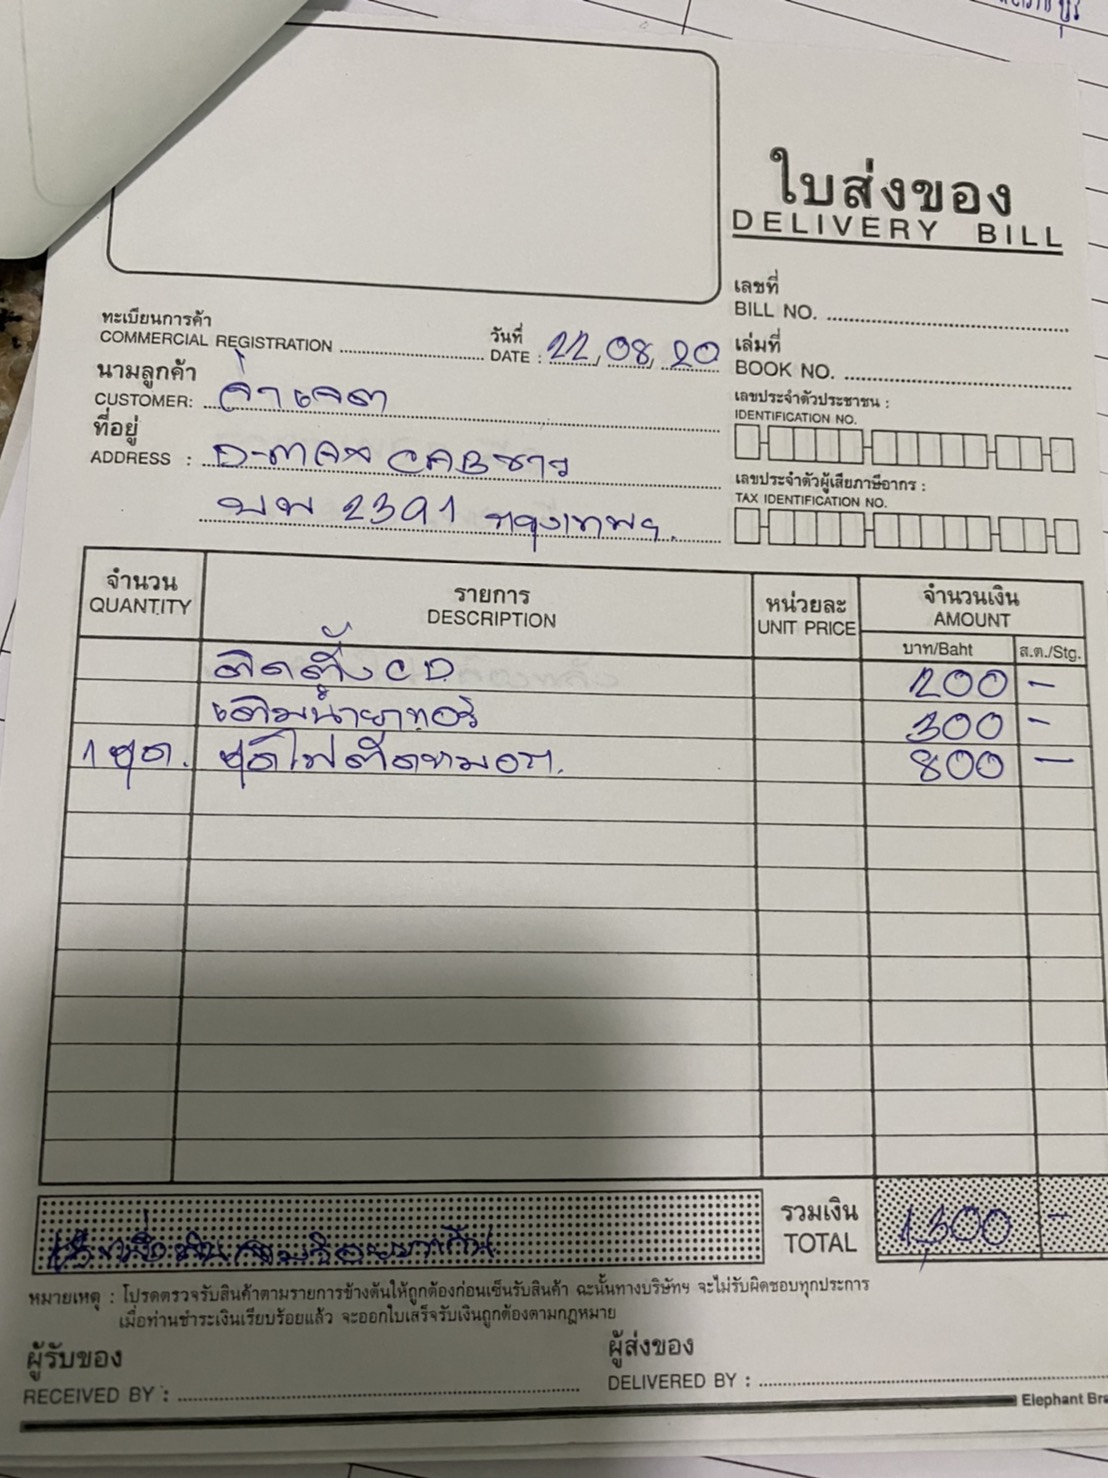 ใบส่งของ
DELIVERY BILL
เลขที่
BILL NO.
ทะเบียนการค้า
COMMERCIAL REGISTRATION
วันที่
DATE : 22, 08, 20
เล่มที่
BOOK NO.
นามลูกค้า
CUSTOMER: จ่าเจต
เลขประจำตัวประชาชน :
IDENTIFICATION NO.
ที่อยู่
ADDRESS : D-max CAB ขาว
เลขประจำตัวผู้เสียภาษีอากร :
TAX IDENTIFICATION NO.
2391 กรุงเทพฯ
จำนวน รายการ หน่วยละ จำนวนเงิน
QUANTITY DESCRIPTION UNIT PRICE AMOUNT
บาท/Baht ส.ต./Stg.
ติดตั้ง CD 200 -
เติมน้ำยาแอร์ 300 -
1 ชุด. ชุดไฟตัดหมอก. 800 -
รวมเงิน
TOTAL 1,300 -
หมายเหตุ : โปรดตรวจรับสินค้าตามรายการข้างต้นให้ถูกต้องก่อนเซ็นรับสินค้า ฉะนั้นทางบริษัทฯ จะไม่รับผิดชอบทุกประการ
เมื่อท่านชำระเงินเรียบร้อยแล้ว จะออกใบเสร็จรับเงินถูกต้องตามกฎหมาย
ผู้รับของ
RECEIVED BY :
ผู้ส่งของ
DELIVERED BY :
Elephant Bra